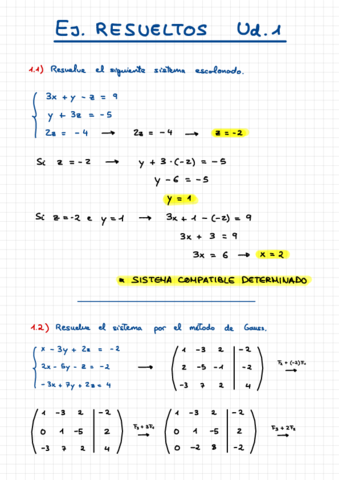 EJ. RESUELTOS Ud.1
1.1) Resuelve el siguiente sistema escalonado.
3x + y - z = 9
y + 3z = -5
2z = -4 → 2z = -4 → z = -2
Si z = -2 → y + 3·(-2) = -5
y - 6 = -5
y = 1
Si z = -2 e y = 1 → 3x + 1 - (-2) = 9
3x + 3 = 9
3x = 6 → x = 2
* SISTEMA COMPATIBLE DETERMINADO
1.2) Resuelve el sistema por el método de Gauss.
x - 3y + 2z = -2
2x - 5y - z = -2
-3x + 7y + 2z = 4
→
1 -3 2 | -2
2 -5 -1 | -2
-3 7 2 | 4
F2 + (-2)F1 →
1 -3 2 | -2
0 1 -5 | 2
-3 7 2 | 4
F3 + 3F1 →
1 -3 2 | -2
0 1 -5 | 2
0 -2 8 | -2
F3 + 2F2 →